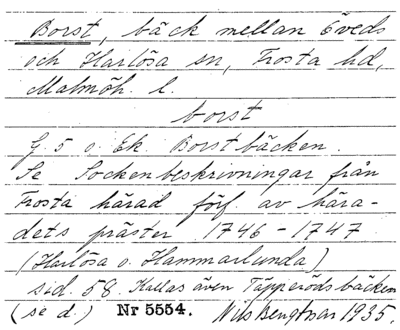 Borst, bäck mellan Öveds
och Harlösa sn, Frosta hd,
Malmöh. l.
borst
G. 5 o. Ek. Borstbäcken.
Se Sockenbeskrivningar från
Frosta härad förf. av hära-
dets präster 1746-1747
(Harlösa o. Hammarlunda)
sid. 58. Kallas även Täpperödsbäcken
(se d.) Nr 5554. Nils Bengtsson 1935.